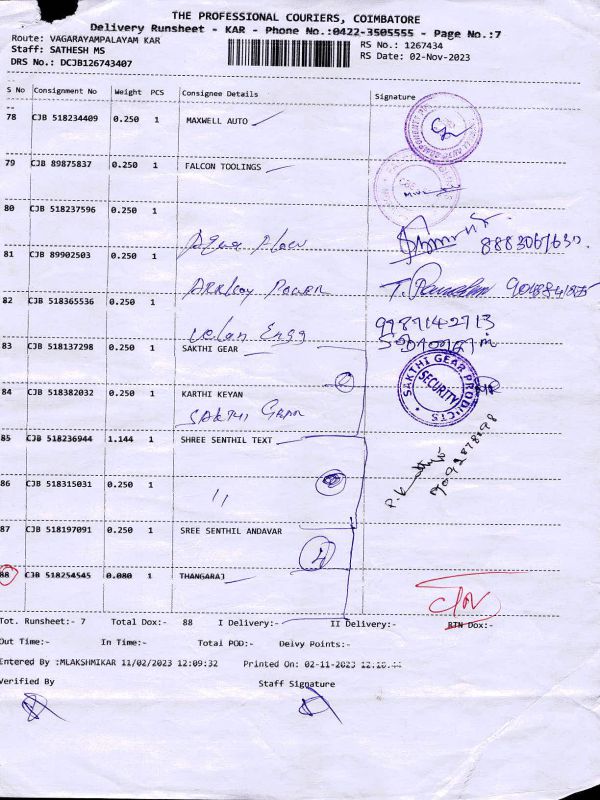 THE PROFESSIONAL COURIERS, COIMBATORE
Delivery Runsheet - KAR - Phone No.:0422-3505555 - Page No.:7
Route: VAGARAYAMPALAYAM KAR
RS No.: 1267434
Staff: SATHESH MS
RS Date: 02-Nov-2023
DRS No.: DCJB126743407
S No Consignment No Weight PCS Consignee Details Signature
78 CJB 518234409 0.250 1 MAXWELL AUTO
79 CJB 89875837 0.250 1 FALCON TOOLINGS
80 CJB 518237596 0.250 1
Aqua Flow
81 CJB 89902503 0.250 1
Power
82 CJB 518365536 0.250 1
Velan Engg
9789142713
83 CJB 518137298 0.250 1 SAKTHI GEAR
SAKTHI GEAR PRODUCTS
SECURITY
84 CJB 518382032 0.250 1 KARTHI KEYAN
SAKTHI Gear
85 CJB 518236944 1.144 1 SHREE SENTHIL TEXT
86 CJB 518315031 0.250 1
"
87 CJB 518197091 0.250 1 SREE SENTHIL ANDAVAR
4
88 CJB 518254545 0.080 1 THANGARAJ
Tot. Runsheet:- 7 Total Dox:- 88 I Delivery:- II Delivery:- RTN Dox:-
Out Time:- In Time:- Total POD:- Delvy Points:-
Entered By :MLAKSHMIKAR 11/02/2023 12:09:32 Printed On: 02-11-2023
Verified By Staff Signature